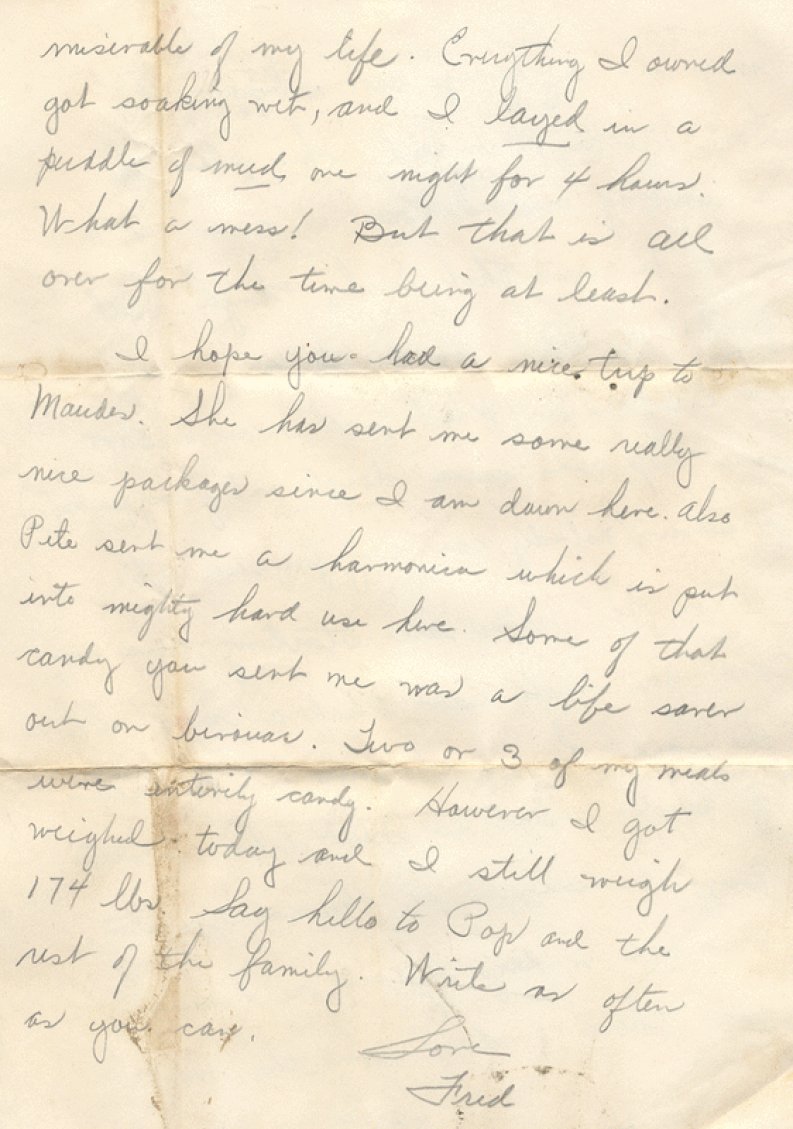 miserable of my life. Everything I owned
got soaking wet, and I layed in a
puddle of mud, one night for 4 hours.
What a mess! But that is all
over for the time being at least.
I hope you had a nice trip to
Maudes. She has sent me some really
nice packages since I am down here. Also
Pete sent me a harmonica which is put
into mighty hard use here. Some of that
candy you sent me was a life saver
out on bivouac. Two or 3 of my meals
were entirely candy. However I got
weighed today and I still weigh
174 lbs. Say hello to Pop and the
rest of the family. Write as often
as you can.
Love
Fred